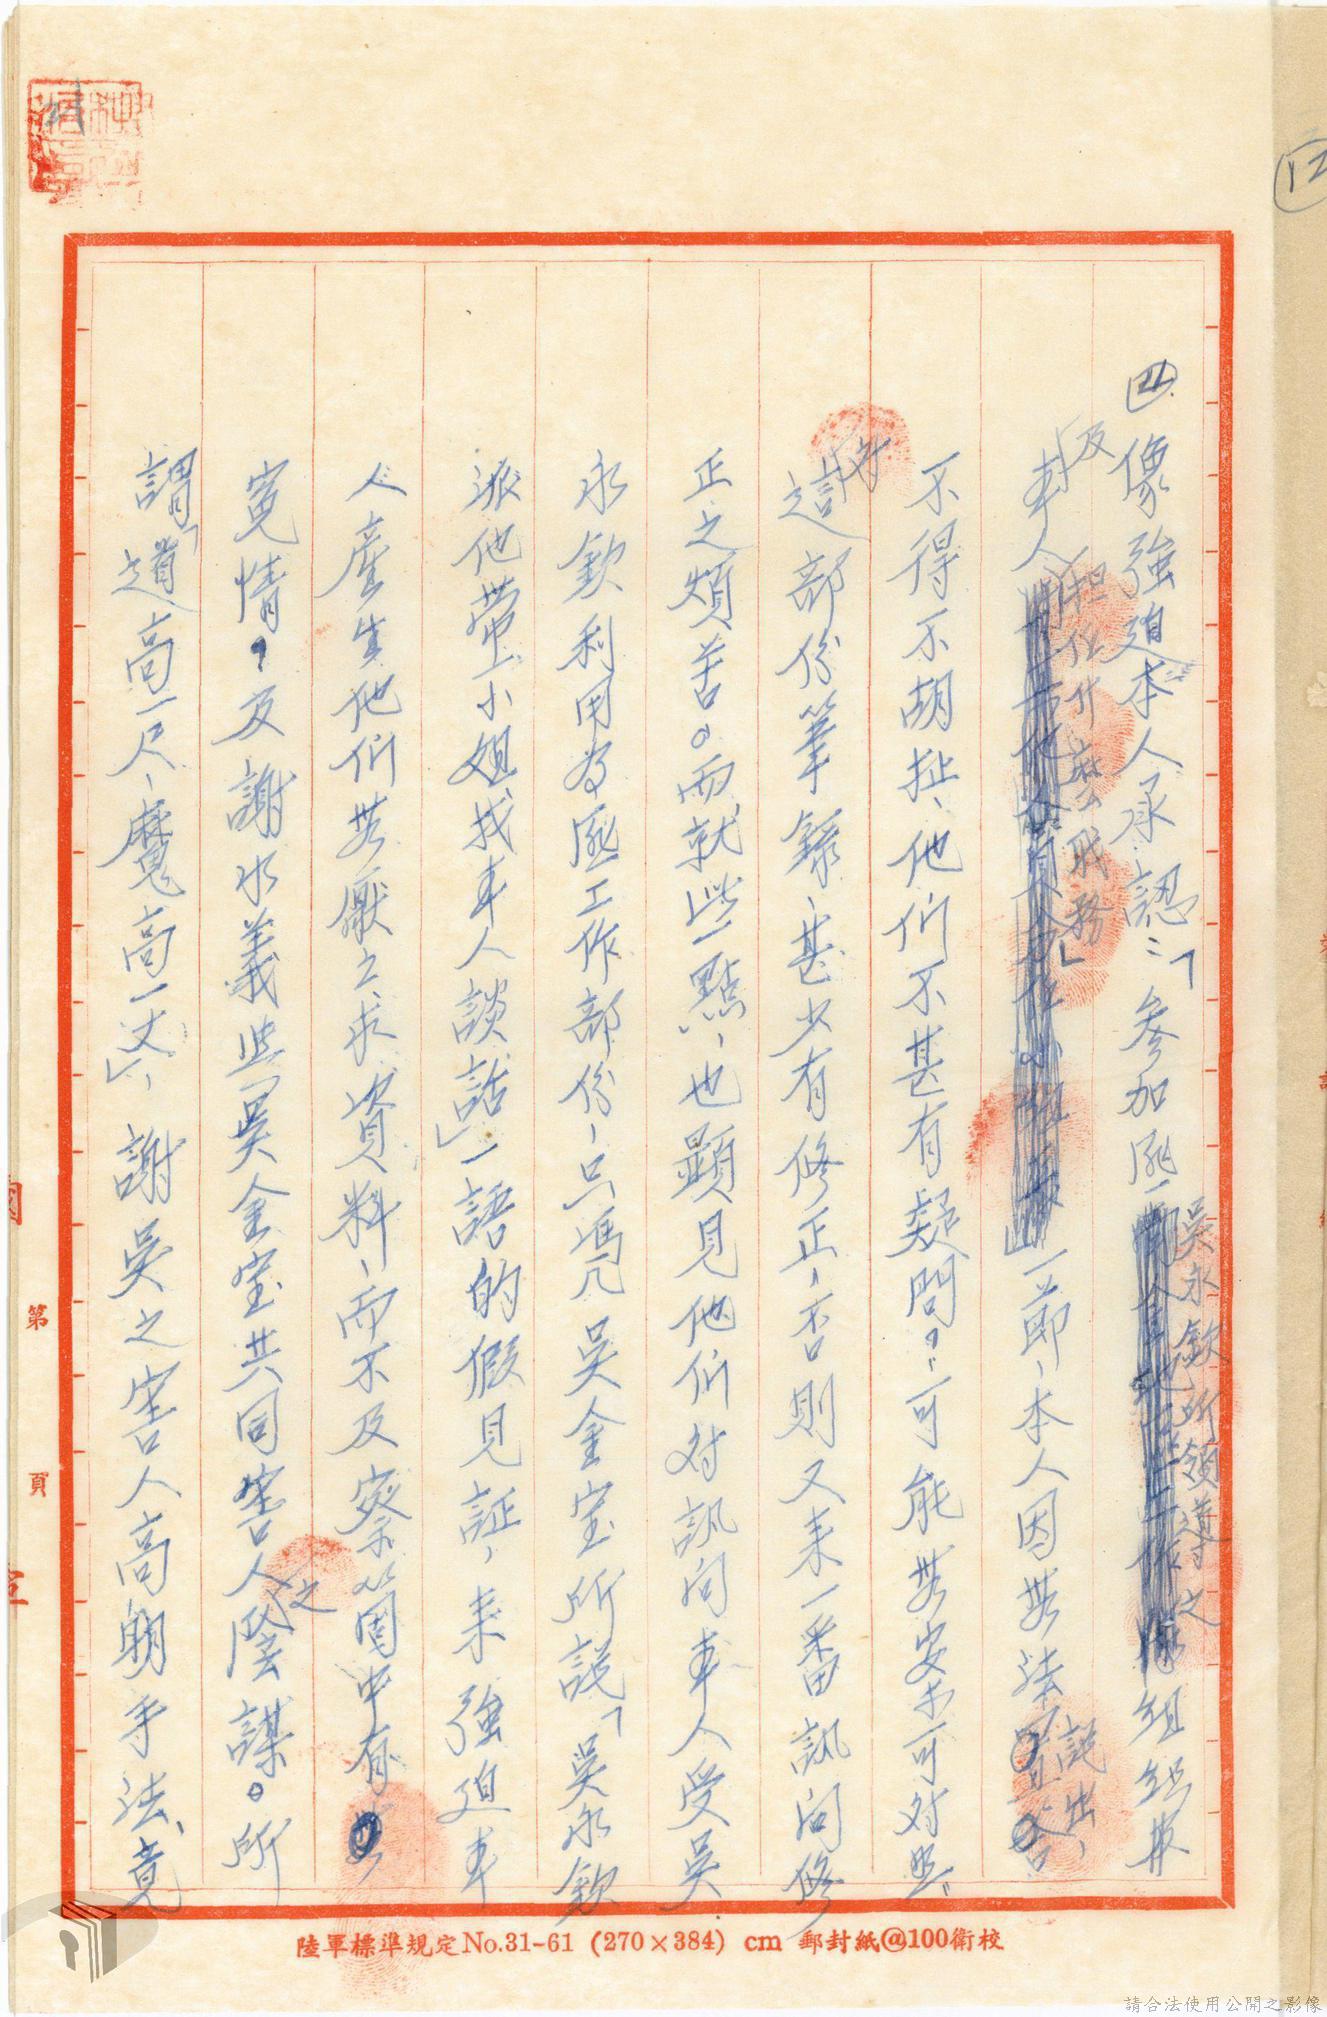 四像強迫本人承認：「參加匪吳永欽所領導之組織
及本人担任什麼職務」一節、本人因無法說出、
不得不胡扯、他們不甚有疑問，可能無案可對照、
將這部份筆錄、甚少有修正，否則又來一番訊问修
正之煩苦。而就此一點、也顯見他們对訊问車人受吳
永欽利用為匪工作部份、只憑吳金宝所説「吳永欽
派他帶小姐找車人談話」一語的假見証、來強迫車
人產生他們無厭之求資料、而不及察箇中有
冤情，及謝水義與吳金宝共同害人之陰謀。所
謂「道高一尺、魔高一丈」、謝吳之害人高明手法、竟
第
頁
陸軍標準規定No.31-61 (270×384) cm 郵封紙@100衛校
請合法使用公開之影像